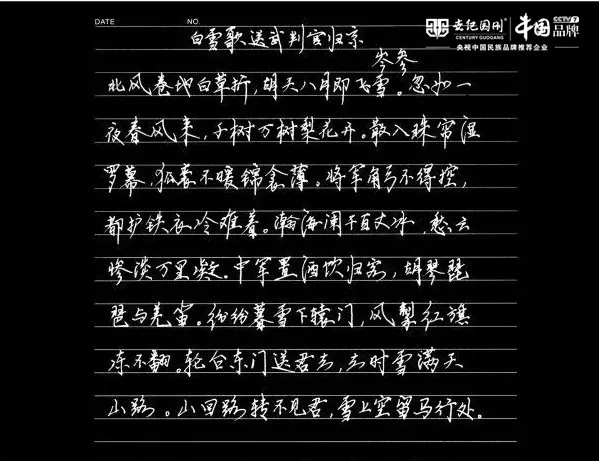 DATE NO.
世纪国刚
CENTURY GUOGANG
CCTV7
中国品牌
央视中国民族品牌推荐企业
白雪歌送武判官归京
岑参
北风卷地白草折,胡天八月即飞雪。忽如一
夜春风来,千树万树梨花开。散入珠帘湿
罗幕,狐裘不暖锦衾薄。将军角弓不得控,
都护铁衣冷难着。瀚海阑干百丈冰,愁云
惨淡万里凝。中军置酒饮归客,胡琴琵
琶与羌笛。纷纷暮雪下辕门,风掣红旗
冻不翻。轮台东门送君去,去时雪满天
山路。山回路转不见君,雪上空留马行处。